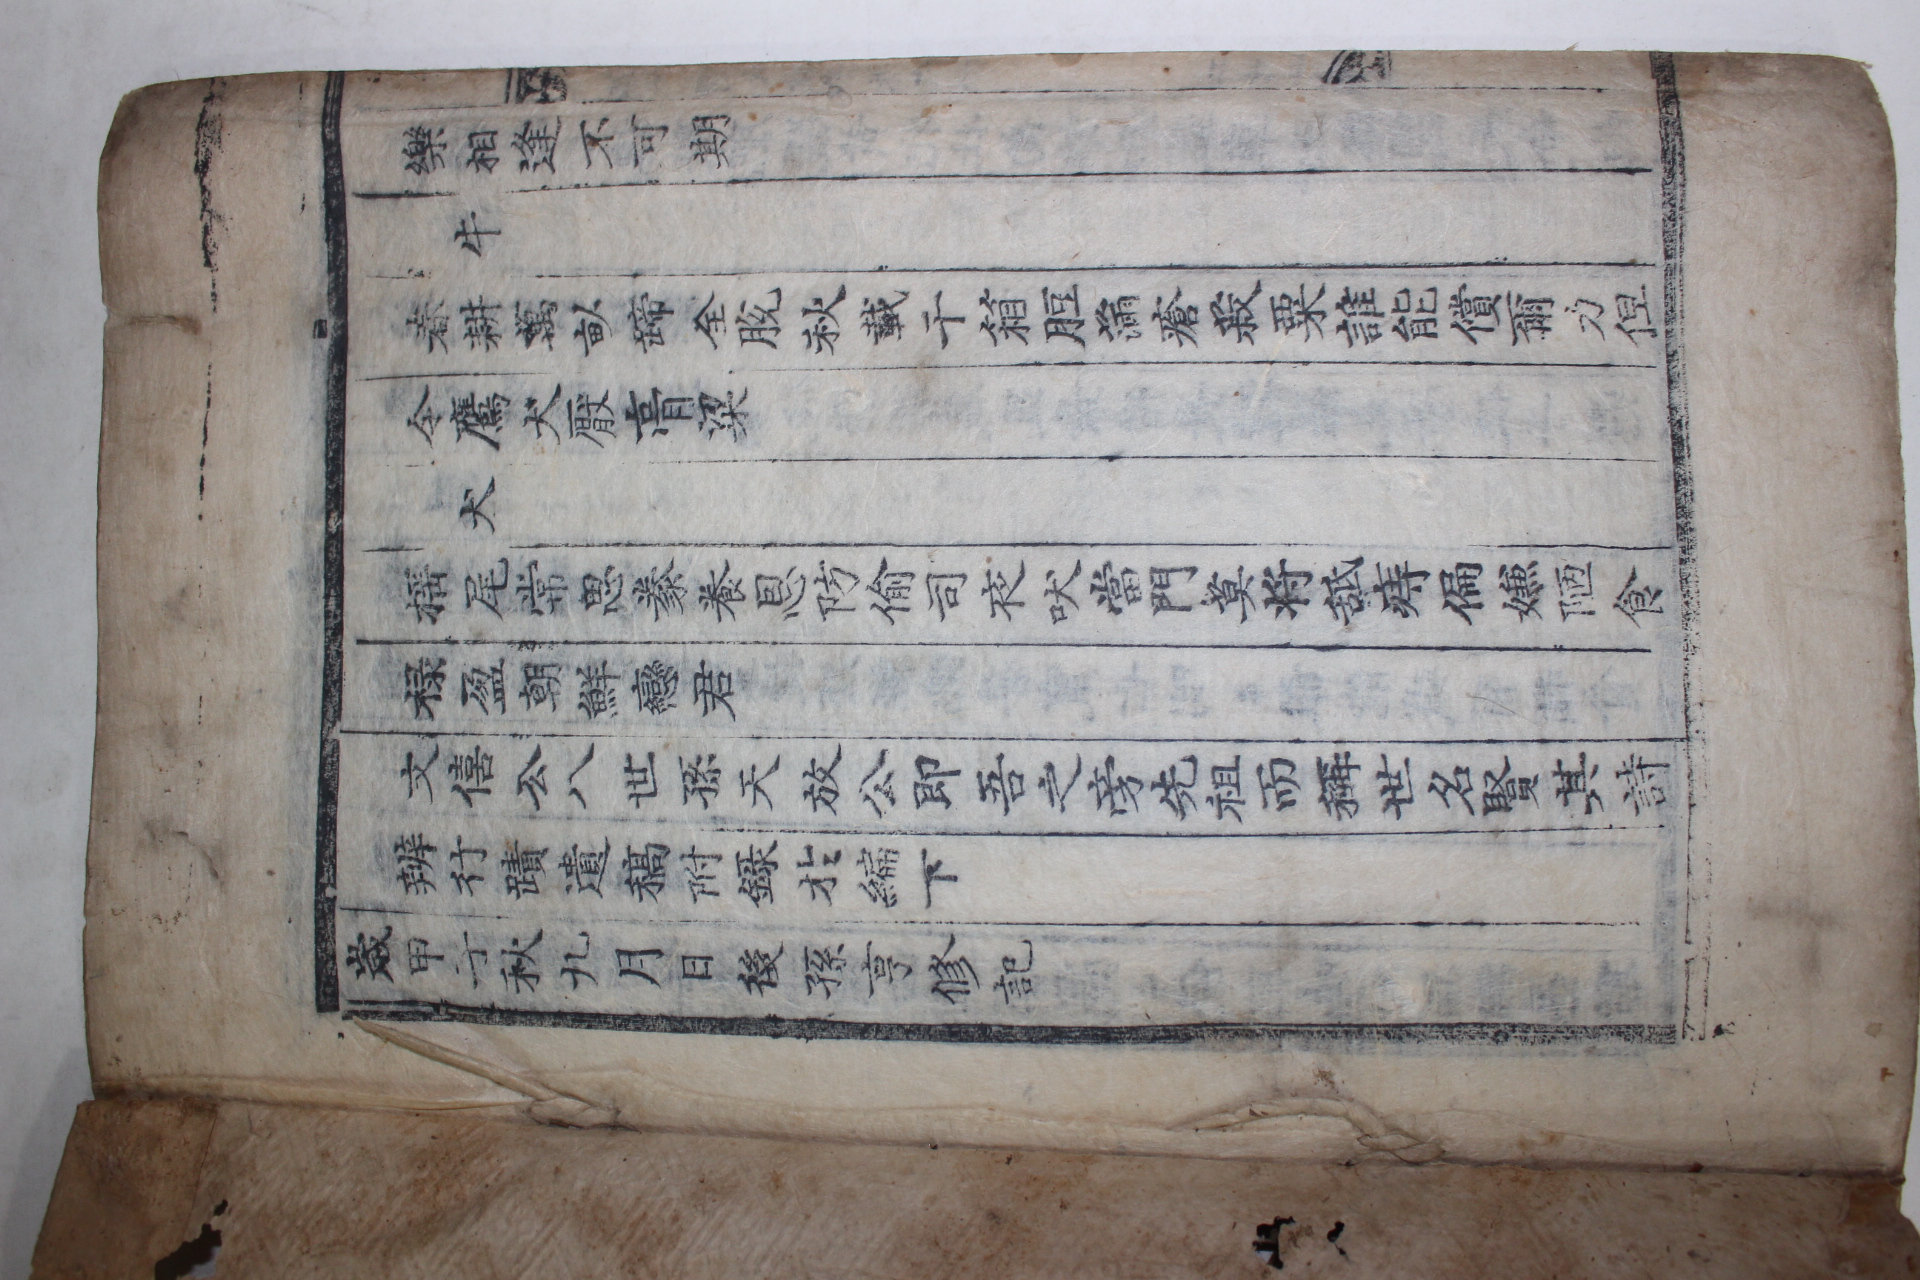 樂相逢不可期
牛
春耕萬畝蹄全脫秋載千箱脰滿瘡菽粟誰能償爾力但
令鷹犬厭膏粱
犬
搖尾常思豢養恩防偷司夜吠當門莫將舐痔偏嫌陋食
祿盈朝鮮戀君
文僖公八世孫天放公即吾之旁先祖而稱世名賢其詩
辨行蹟遺稿附錄於編下
歲甲子秋九月日後孫亨修記